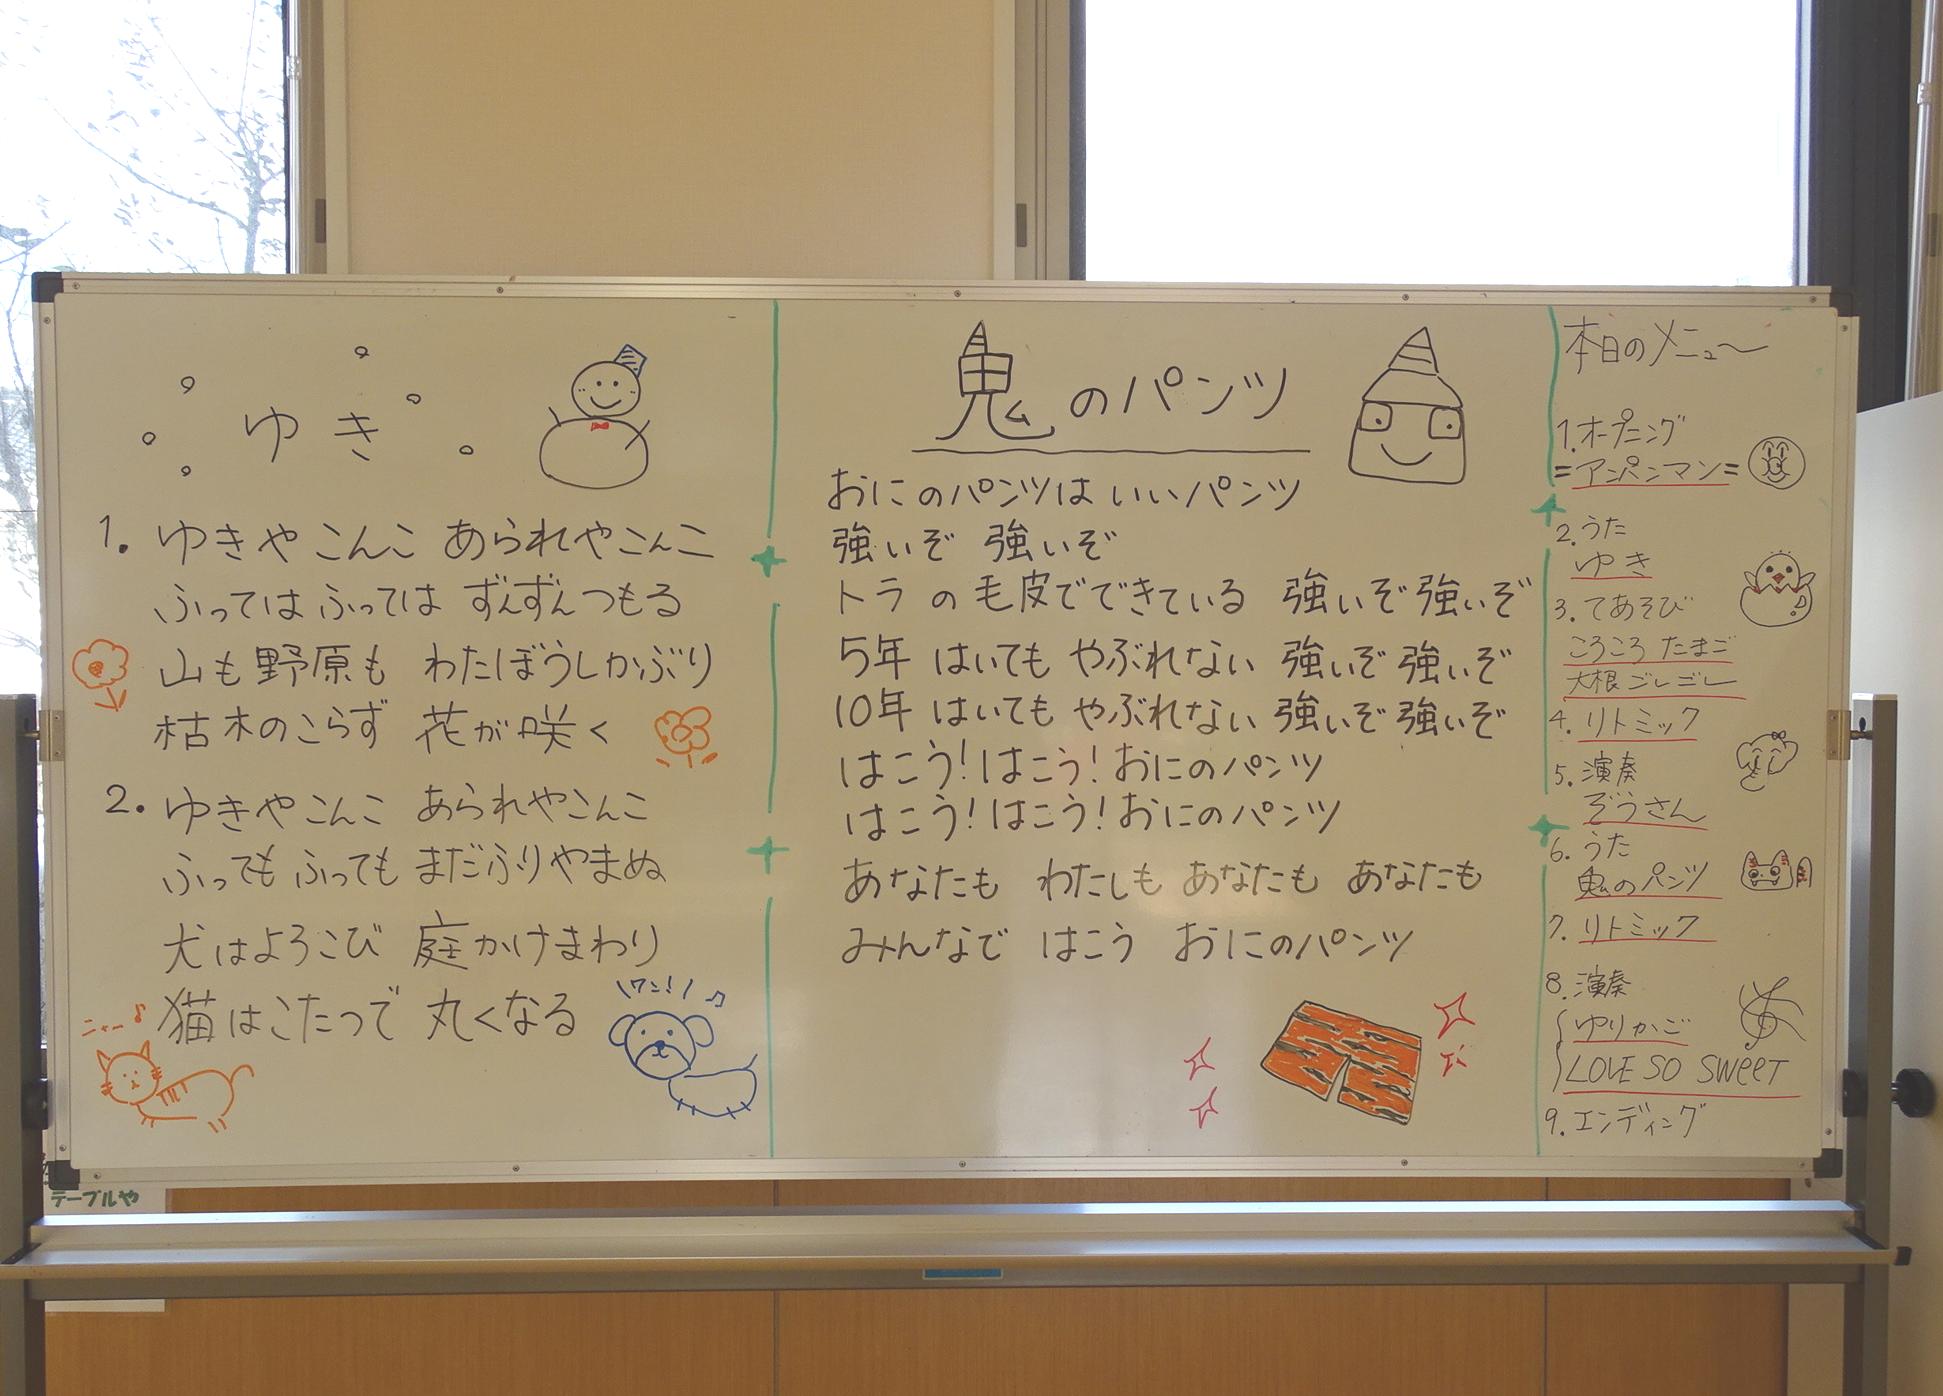 ゆき
1. ゆきやこんこ あられやこんこ
ふってはふっては ずんずんつもる
山も野原も わたぼうしかぶり
枯木のこらず 花が咲く
2. ゆきやこんこ あられやこんこ
ふってもふっても まだふりやまぬ
犬はよろこび 庭かけまわり
猫はこたつで 丸くなる
ニャー♪
ワン!♫
鬼のパンツ
おにのパンツは いいパンツ
強いぞ 強いぞ
トラの毛皮でできている 強いぞ強いぞ
5年 はいても やぶれない 強いぞ強いぞ
10年 はいても やぶれない 強いぞ強いぞ
はこう!はこう!おにのパンツ
はこう!はこう!おにのパンツ
あなたも わたしも あなたも あなたも
みんなで はこう おにのパンツ
本日のメニュ〜
1.オープニング
=アンパンマン=
2.うた
ゆき
3.てあそび
ころころ たまご
大根ごしごし
4.リトミック
5.演奏
ぞうさん
6.うた
鬼のパンツ
7.リトミック
8.演奏
ゆりかご
LOVE SO SWEET
9.エンディング
テーブルや